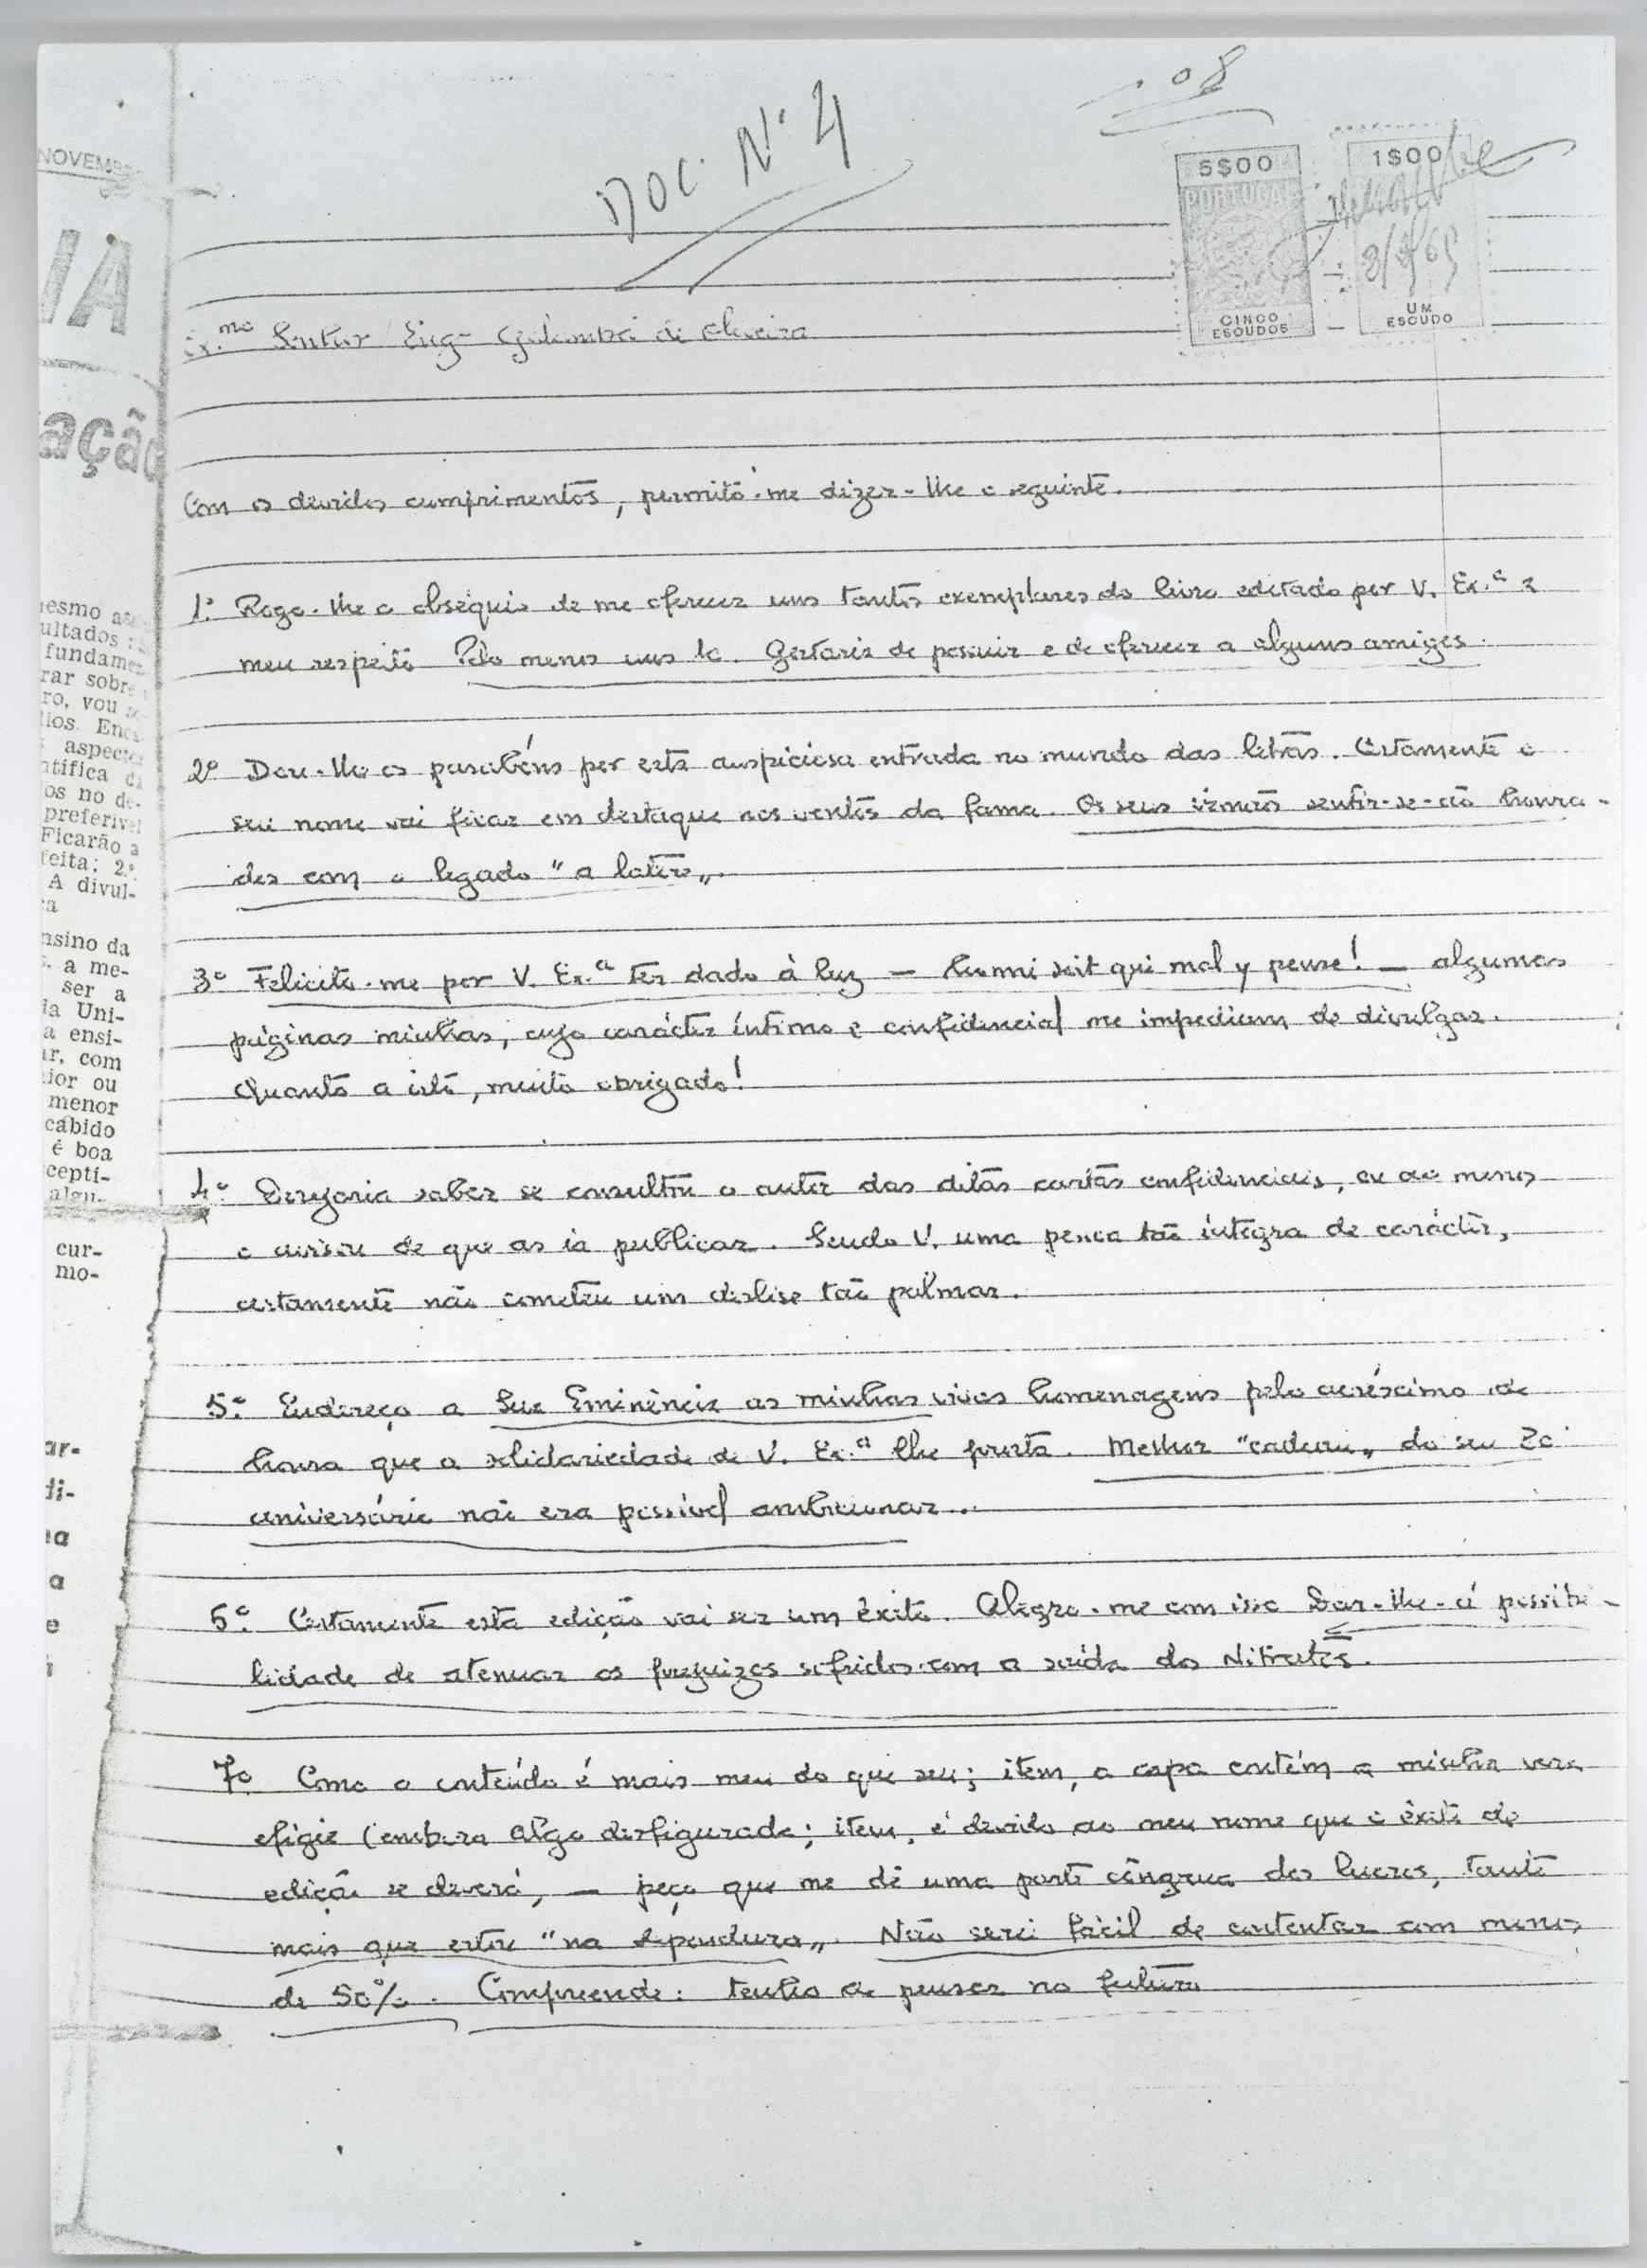 DOC. Nº 4
08
5$00
PORTUGAL
CINCO
ESCUDOS
1$00
UM
ESCUDO
NOVEMB
IA
ação
mesmo
ultados
fundame
rar sobre
ro, vou
lios. Enc
aspecto
ntífica d
os no de-
preferível
Ficarão a
feita; 2.º
A divul-
ra
nsino da
a me-
ser a
da Uni-
a ensi-
ar, com
ior ou
menor
cabido
é boa
cepti-
algu-
cur-
mo-
ar-
di-
a
a
e
Ex.mo Senhor Eng.º de Oliveira
Com os devidos cumprimentos, permito-me dizer-lhe o seguinte.
1.º Rogo-lhe o obséquio de me oferecer uns tantos exemplares do livro editado por V. Ex.ª a
meu respeito. Pelo menos uns 10. Gostaria de possuir e de oferecer a alguns amigos.
2º Dou-lhe os parabéns por esta auspiciosa entrada no mundo das letras. Certamente o
seu nome vai ficar em destaque nos ventos da fama. Os seus irmãos sentir-se-ão honra-
dos com o legado "a latere".
3º Felicito-me por V. Ex.ª ter dado à luz — honni soit qui mal y pense! — algumas
páginas minhas, cujo carácter íntimo e confidencial me impediam de divulgar.
Quanto a isto, muito obrigado!
4º Desejaria saber se consultou o autor das ditas cartas confidenciais, ou ao menos
o avisou de que as ia publicar. Sendo V. uma pessoa tão íntegra de carácter,
certamente não cometeu um deslise tão palmar.
5.º Endereço a Sua Eminência as minhas vivas homenagens pelo acréscimo de
honra que a solidariedade de V. Ex.ª lhe presta. Melhor "cadeau" do seu 20º
aniversário não era possível
6º Certamente esta edição vai ser um êxito. Alegro-me com isso. Dar-lhe-á possibi-
lidade de atenuar os prejuizos sofridos com a saída dos Nitratos.
7º Como o conteúdo é mais meu do que seu; item, a capa contém a minha vera
efígie (embora algo desfigurada; item, é devido ao meu nome que o êxito da
edição se deverá, — peço que me dê uma parte côngrua dos lucros, tanto
mais que estou "na dependura". Não serei fácil de contentar com menos
de 50%. Compreende: tenho de pensar no futuro